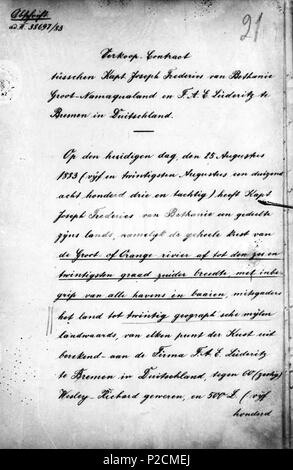 Abschrift
ad A. 38697/83
21
Verkoop-Contract
tüsschen Kapt Joseph Frederics van Bethanie
Groot-Namaqualand en F. A. E. Lüderitz te
Bremen in Duitschland.
Op den huidigen dag, den 25 Augustus
1883 (vijf en twintigsten Augustus een duizend
acht honderd drie en tachtig) heeft Kapt
Joseph Frederics van Bethanie een gedeelte
zijns lands, namelijk de geheele kust van
de Groot of Orange rivier af tot den zes en
twintigsten graad zuider breedte, met inbe
grip van alle havens en baaien, mitsgaders
het land tot twintig geograph'sche mijlen
landwaards, van elken punt der Kust uit
berekend aan de Firma F. A. E. Lüderitz
te Bremen in Duitschland, tegen 60 (zestig)
Wesley-Richard geweren, en 500 £ (vijf
honderd
alamy
2CMEJ